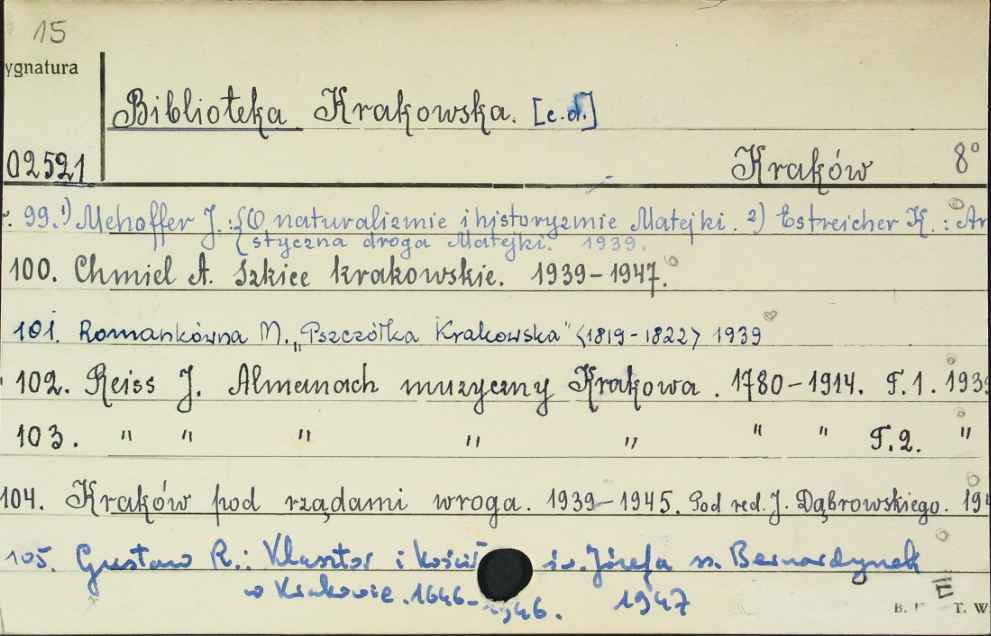 15
ygnatura
Biblioteka Krakowska. [c.d.]
02521
Kraków 8°
r. 99. 1) Mehoffer J.: {O naturalizmie i historyzmie Matejki. 2) Estreicher K.: Ar
styczna droga Matejki. 1939.
100. Chmiel A. Szkice krakowskie. 1939-1947.
101. Romankówna M. „Pszczółka Krakowska" <1819-1822> 1939
102. Reiss J. Almanach muzyczny Krakowa. 1780-1914. T.1. 1939
103. " " " " " " " T.2. "
104. Kraków pod rządami wroga. 1939-1945. Pod red. J. Dąbrowskiego. 194
105. Gustaw R.: Klasztor i kości św. Józefa ss. Bernardynek
w Krakowie. 1646-1946. 1947
E
B. T. W